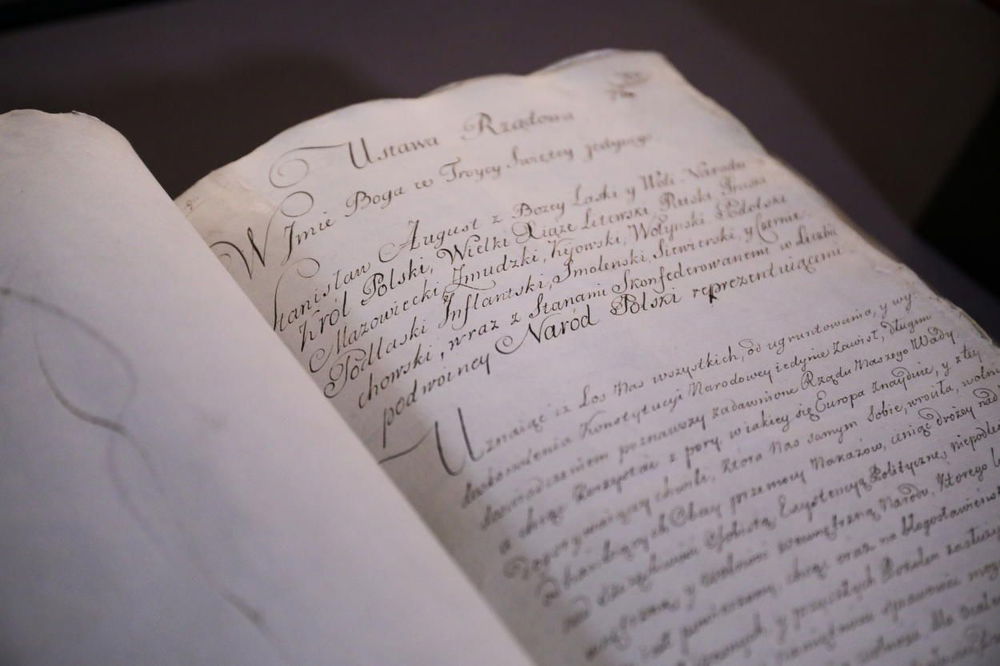 Ustawa Rządowa
W Imie Boga w Troycy Swiętey jedynego
Stanisław August z Bozey Łaski y Woli Narodu
Krol Polski, Wielki Xiąze Litewski Ruski Pruski
Mazowiecki Zmudzki, Kijowski, Wołynski Podolski
Podlaski Inflantski, Smolenski, Siewierski, y Czernie
chowski, wraz z Stanami Skonfederowanemi w Liczbie
podwoiney Naród Polski reprezentuiącemi
Uznaiąc iz Los Nas wszystkich, od ugruntowania, y wy-
doskonalenia Konstytucyi Narodowey iedynie zawisł, długim
doswiadczeniem poznawszy zadawnione Rządu Naszego Wady
a chcąc korzystac z pory, w iakiey się Europa znayduie, y z tey
dogorywaiącey chwili, ktora Nas samym sobie, wrociła, wolni
od hanbiących Obcey przemocy Nakazow, ceniąc drozey nad
Egzystencyą Polityczną
zewnętrzną Narodu, ktorego
chcąc oraz na błogosławienstwo
y przyszłych Pokolen